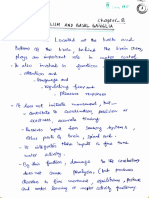 chapter-8
CEREBELLUM AND BASAL GANGLIA
Located at the back and
bottom of the brain, behind the brain stem
plays an important role in motor control
It also involved in functions
- attention and
- language and
- regulating fear and
pleasure responses
It does not initiate movement, but
contribute to coordination, precision of
activities, accurate timing.
Receives input from sensory systems of
other parts of brain & spinal cord and
integrates these inputs.
By this function, damage to the cerebellum
does not cause paralysis, but produces
disorders in fine movement, equilibrium, posture
and motor learning or motor activity functions.